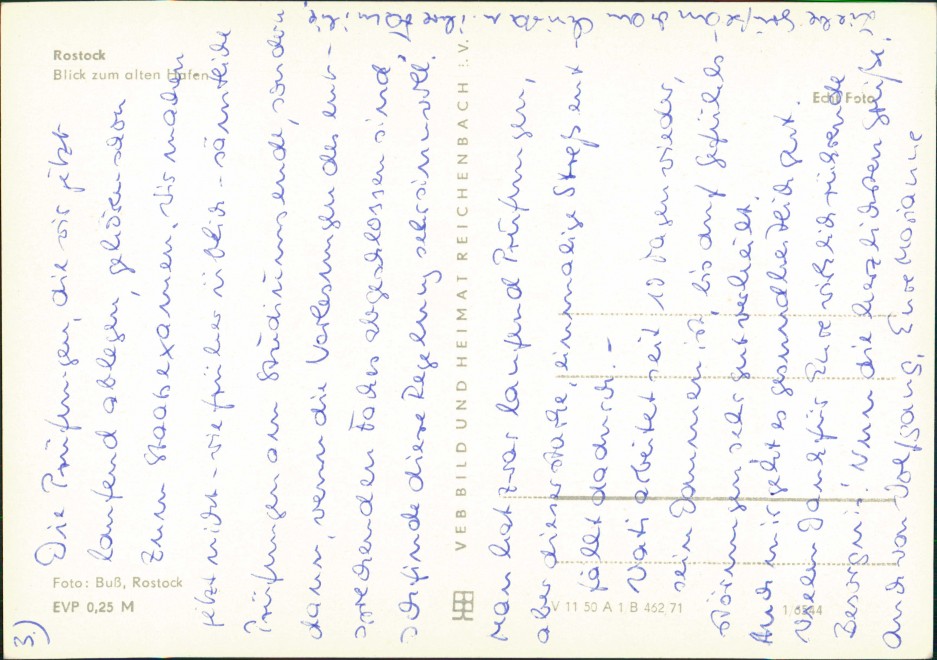 Rostock
Blick zum alten Hafen
Echt Foto
Foto: Buß, Rostock
EVP 0,25 M
VEB BILD UND HEIMAT REICHENBACH i. V.
V 11 50 A 1 B 462 71
3.)
Die Prüfungen, die wir jetzt
laufend ablegen, gehören schon
zum Staatsexamen. Wir machen
jetzt nicht - wie früher üblich - sämtliche
Prüfungen am Studiumsende, sondern
dann, wenn die Vorlesungen des ent-
sprechenden Faches abgeschlossen sind.
Ich finde diese Regelung sehr sinnvoll.
Man hat zwar laufend Prüfungen,
aber dieser starke, einmalige Streß ent-
fällt dadurch. -
Vati arbeitet seit 10 Tagen wieder,
sein Daumen ist, bis auf Gefühls-
störungen sehr gut verheilt.
Auch mir geht es gesundheitlich gut.
Vielen Dank für Eure wirklich rührende
Besorgnis! Nun die herzlichsten Grüße,
auch von Wolfgang, Eure Marianne
Liebe Grüße an